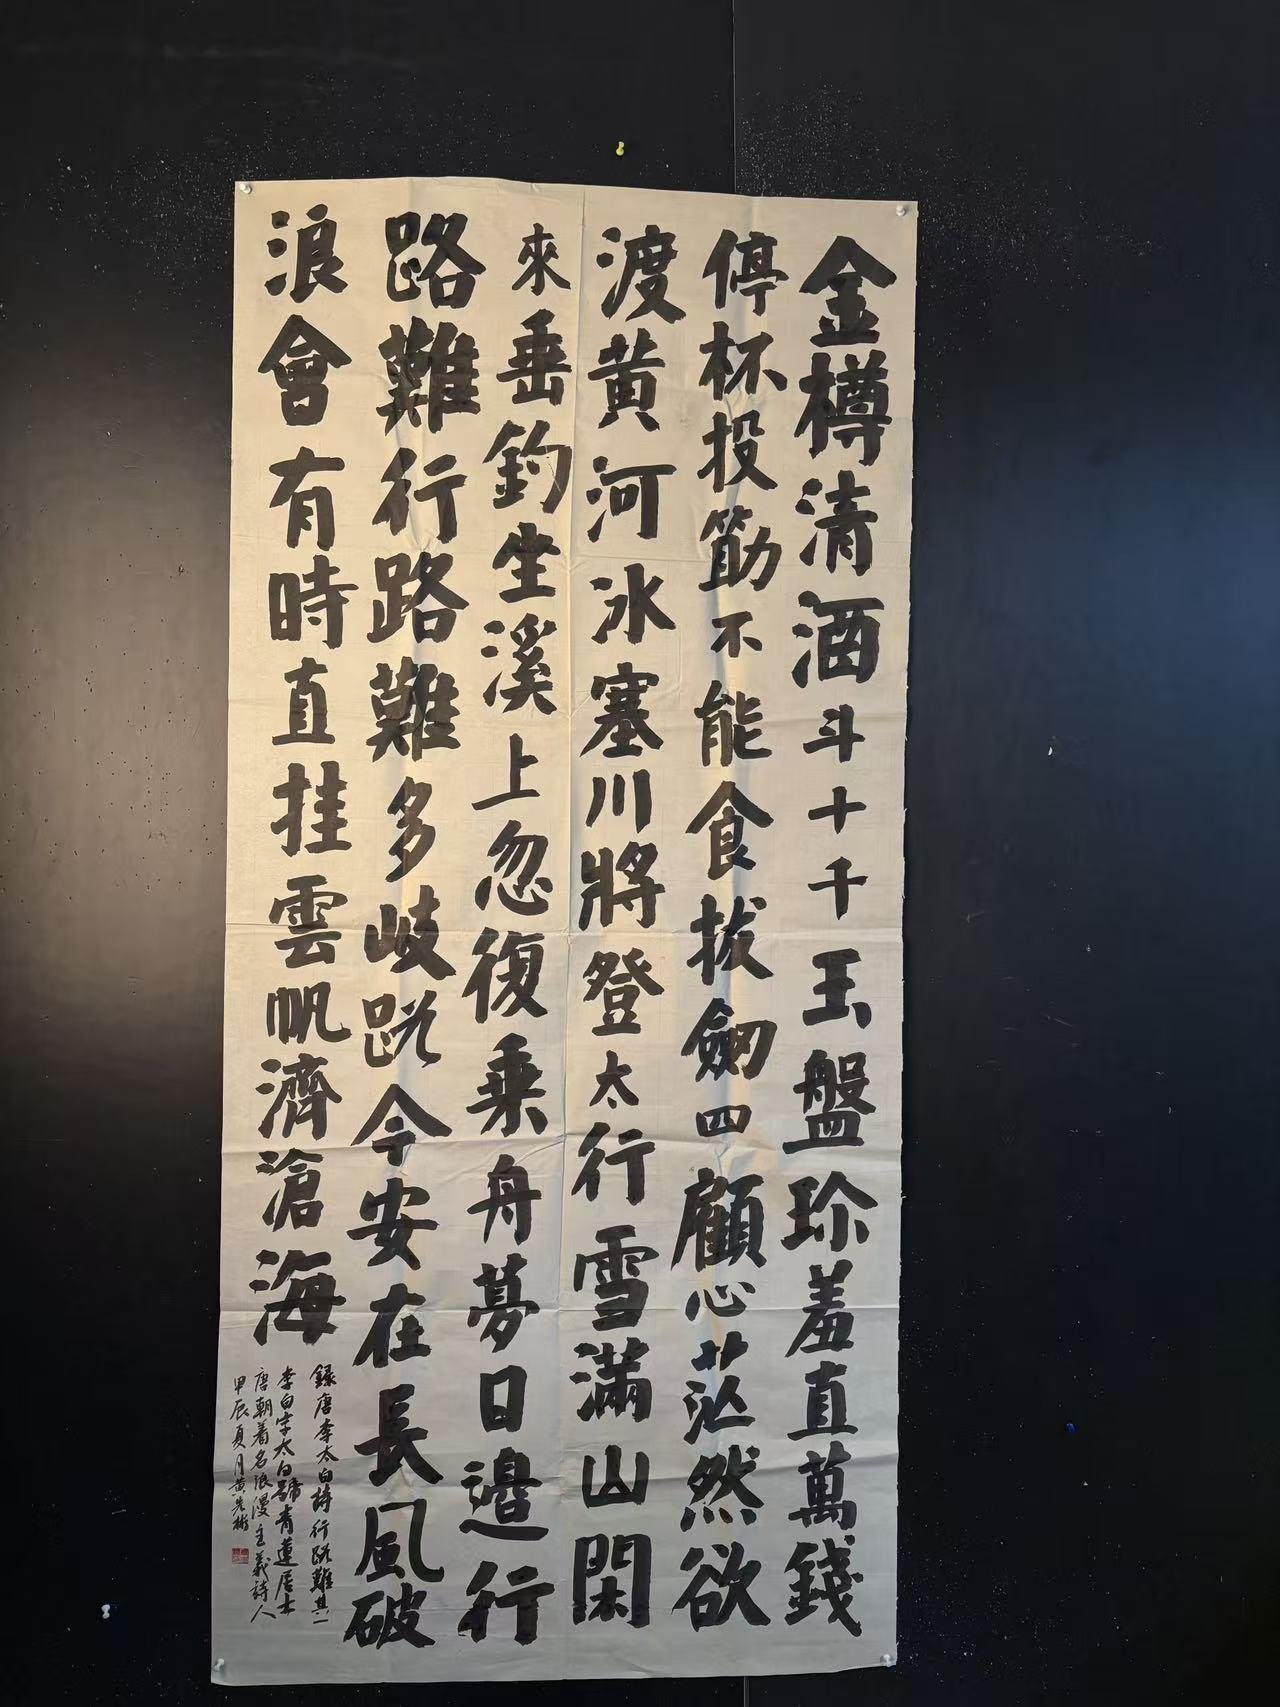 金樽清酒斗十千玉盤珎羞直萬錢
停杯投筯不能食拔劒四顧心茫然欲
渡黃河冰塞川將登太行雪滿山閑
來垂釣坐溪上忽復乘舟夢日邊行
路難行路難多岐路今安在長風破
浪會有時直挂雲帆濟滄海
錄唐李太白詩行路難其一
李白字太白號青蓮居士
唐朝著名浪漫主義詩人
甲辰夏月黃先彬